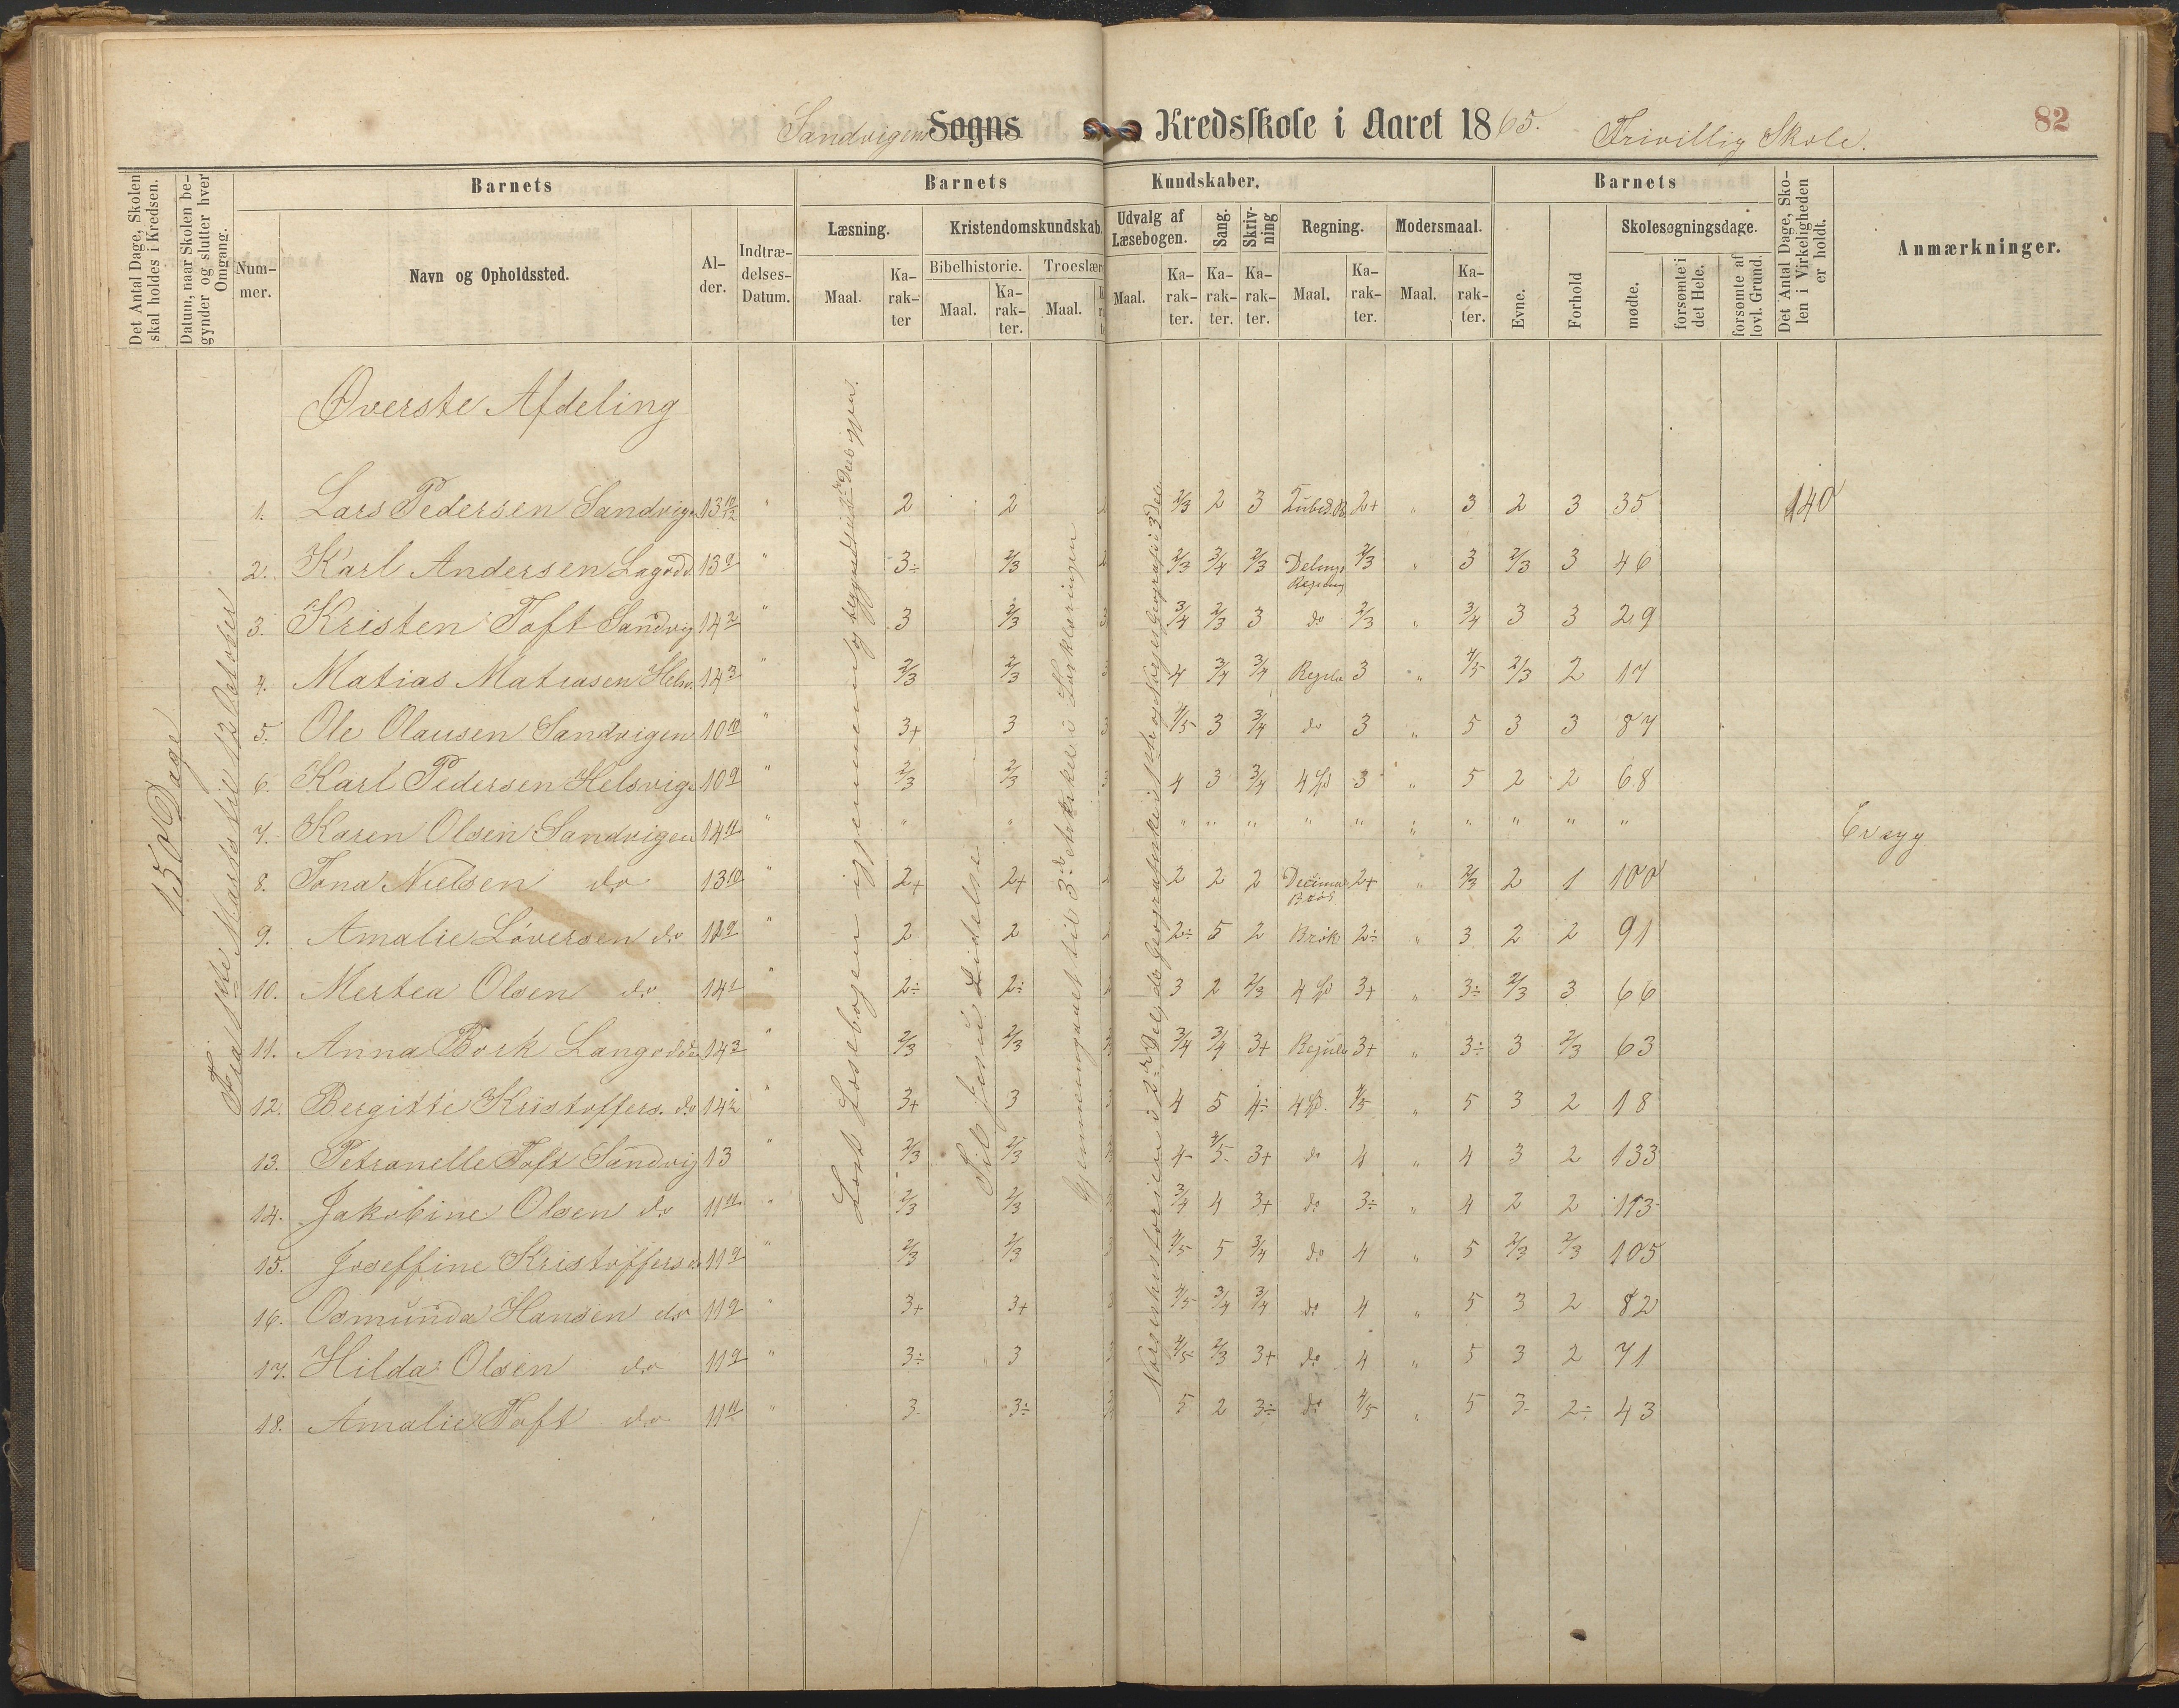 Sandvigens Sogns Kredsskole i Aaret 1865. Frivillig Skole. 82
Det Antal Dage, Skolen skal holdes i Kredsen.
Datum, naar Skolen begynder og slutter hver Omgang.
Barnets
Nummer.
Navn og Opholdssted.
Alder.
Indtrædelses-Datum.
Barnets Kundskaber.
Læsning.
Maal.
Karakter
Kristendomskundskab.
Bibelhistorie.
Maal.
Karakter.
Troeslær
Maal.
Udvalg af Læsebogen.
Maal.
Karakter.
Sang.
Karakter.
Skrivning
Karakter.
Regning.
Maal.
Karakter.
Modersmaal.
Maal.
Karakter.
Barnets
Evne.
Forhold
Skolesøgningsdage.
mødte.
forsømte i det Hele.
forsømte af lovl. Grund.
Det Antal Dage, Skolen i Virkeligheden er holdt.
Anmærkninger.
150 Dage
Marts til 13 Oktober
Læst Læsebogen igjennem og
Til Jesu Lidelse
Gjennemgaaet til 3die Artikel i Forklaringen
Øverste Afdeling
1. Lars Pedersen Sandvig 13 10/12 " 2 2 2/3 2 3 2+ " 3 2 3 35 140
2. Karl Andersen 13 9 " 3÷ 2/3 2/3 3/4 2/3 Delings Regning 2/3 " 3 2/3 3 46
3. Kristen Toft Sandvig 14 2 " 3 2/3 3/4 2/3 3 do 2/3 " 3/4 3 3 29
4. Matias Matiasen Helsv. 14 3 " 2/3 2/3 4 3/4 3/4 3 " 4/5 2/3 2 17
5. Ole Olausen Sandvigen 10 10 " 3+ 3 4/5 3 3/4 do 3 " 5 3 3 87
6. Karl Pedersen Helsvig 10 9 " 2/3 2/3 4 3 3/4 3 " 5 2 2 68
7. Karen Olsen Sandvigen 14 11 " " " " " " " " " " " " "
8. Tona Nielsen do 13 10 " 2+ 2+ 2 2 2 Decimal Brøk 2+ " 2/3 2 1 100
9. Amalie Løversen do 12 9 " 2 2 2÷ 5 2 Brøk 2÷ " 3 2 2 91
10. Mertea Olsen do 14 1 " 2÷ 2÷ 3 2 2/3 3+ " 3÷ 2/3 3 66
11. Anna Bork Langodde 14 3 " 2/3 2/3 3/4 3/4 3+ 3+ " 3÷ 3 2/3 63
12. Bergitte Kristoffers. do 14 2 " 3+ 3 4 5 4÷ 4/5 " 5 3 2 18
13. Petronelle Toft Sandvig 13 " 2/3 2/3 4 4/5 3+ do 4 " 4 3 2 133
14. Jakobine Olsen do 11 11 " 2/3 2/3 3/4 4 3+ do 3÷ " 4 2 2 113
15. Joseffine Kristoffers do 11 9 " 2/3 2/3 4/5 5 3/4 do 4 " 5 2/3 2/3 105
16. Osmunda Hansen do 11 9 " 3+ 3+ 4/5 3/4 3/4 do 4 " 5 3 2 82
17. Hilda Olsen do 11 9 " 3÷ 3 4/5 2/3 3+ do 4 " 5 3 2 71
18. Amalie Toft do 11 11 " 3 3÷ 5 2 3÷ do 4/5 " 5 3 2÷ 43